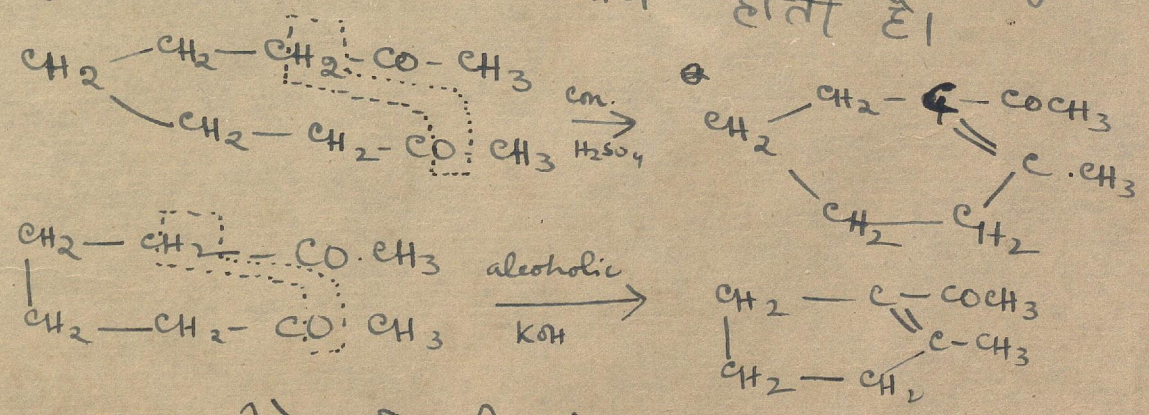 होता है।
CH2 — CH2 — CH2 - CO - CH3
CH2 — CH2 - CO - CH3
con.
H2SO4
CH2 — CH2 - C - COCH3
C . CH3
CH2 — CH2
CH2 — CH2 — CO . CH3
CH2 — CH2 - CO CH3
alcoholic
KOH
CH2 — C - COCH3
C - CH3
CH2 — CH2